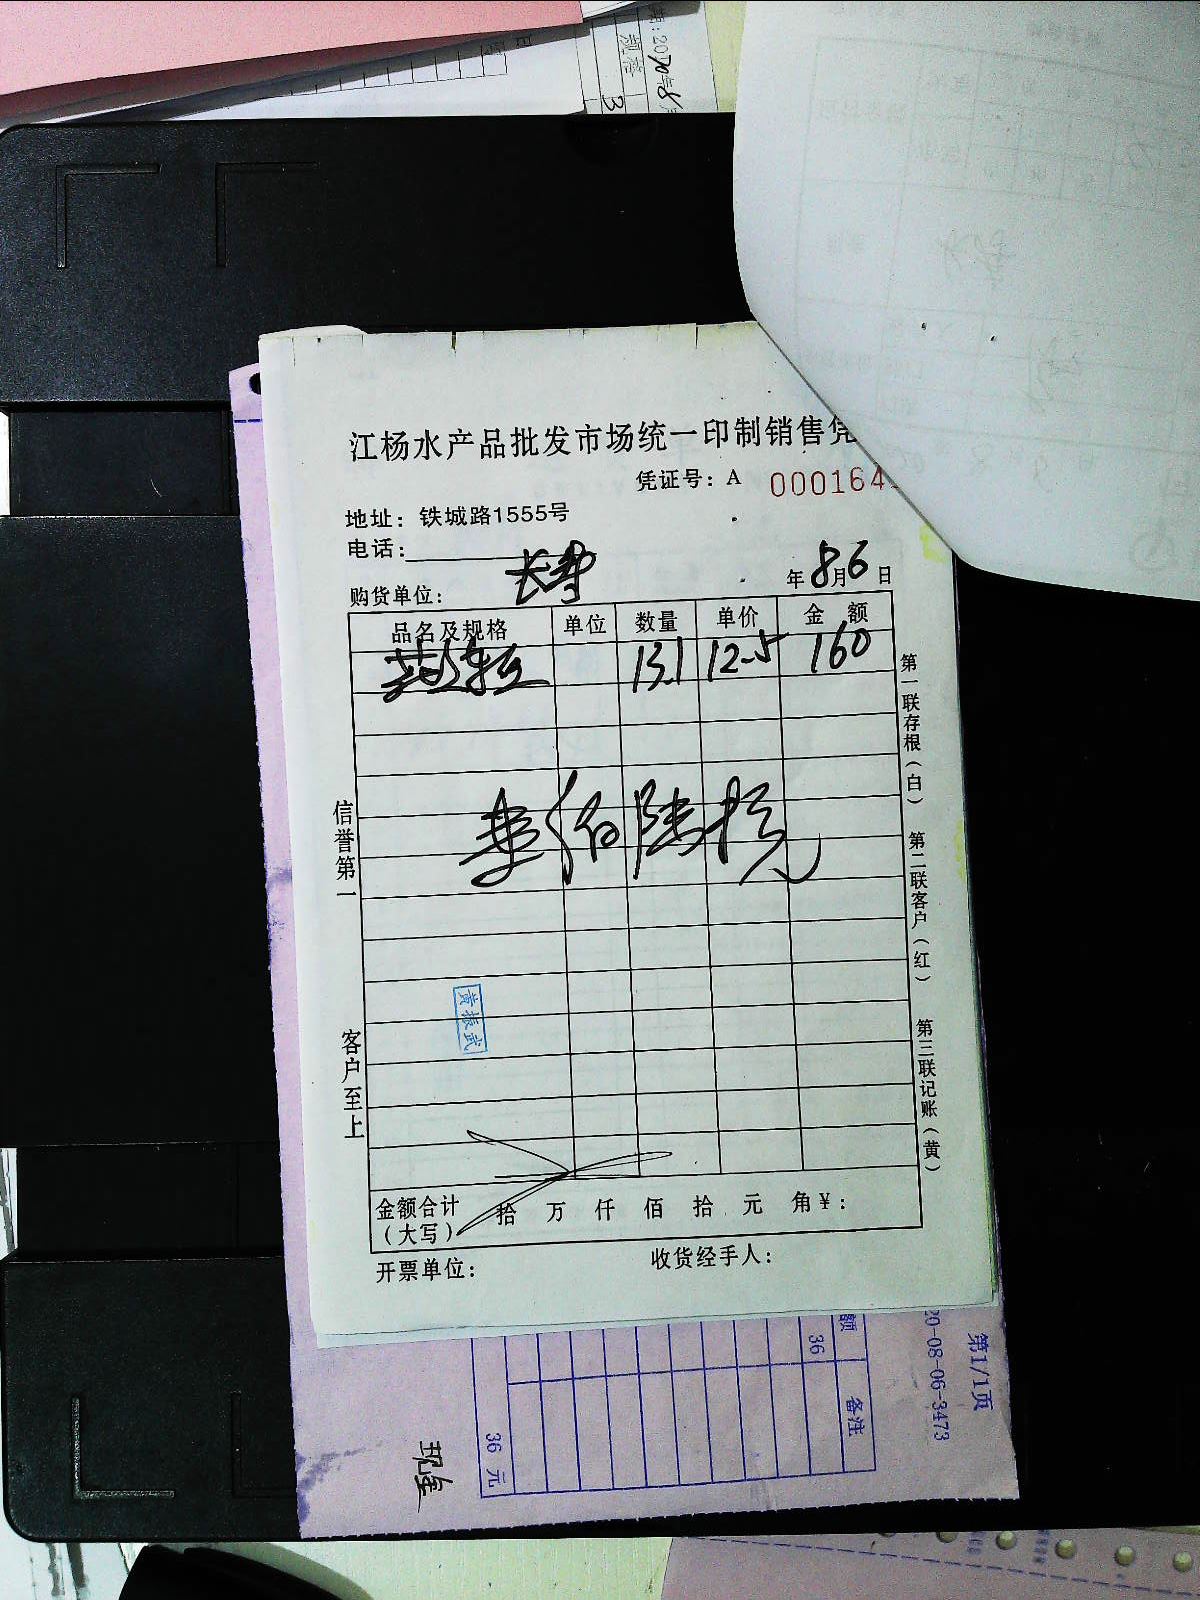 江杨水产品批发市场统一印制销售凭
凭证号：A 000164
地址：铁城路1555号
电话：
购货单位：
年8月6日
品名及规格 单位 数量 单价 金额
13.1 12.5 160
信誉第一
客户至上
第一联存根（白）
第二联客户（红）
第三联记账（黄）
黄振武
金额合计（大写） 拾 万 仟 佰 拾 元 角 ¥：
开票单位：
收货经手人：
额
36
备注
36 元
20-08-06-3473
第1/1页
现金